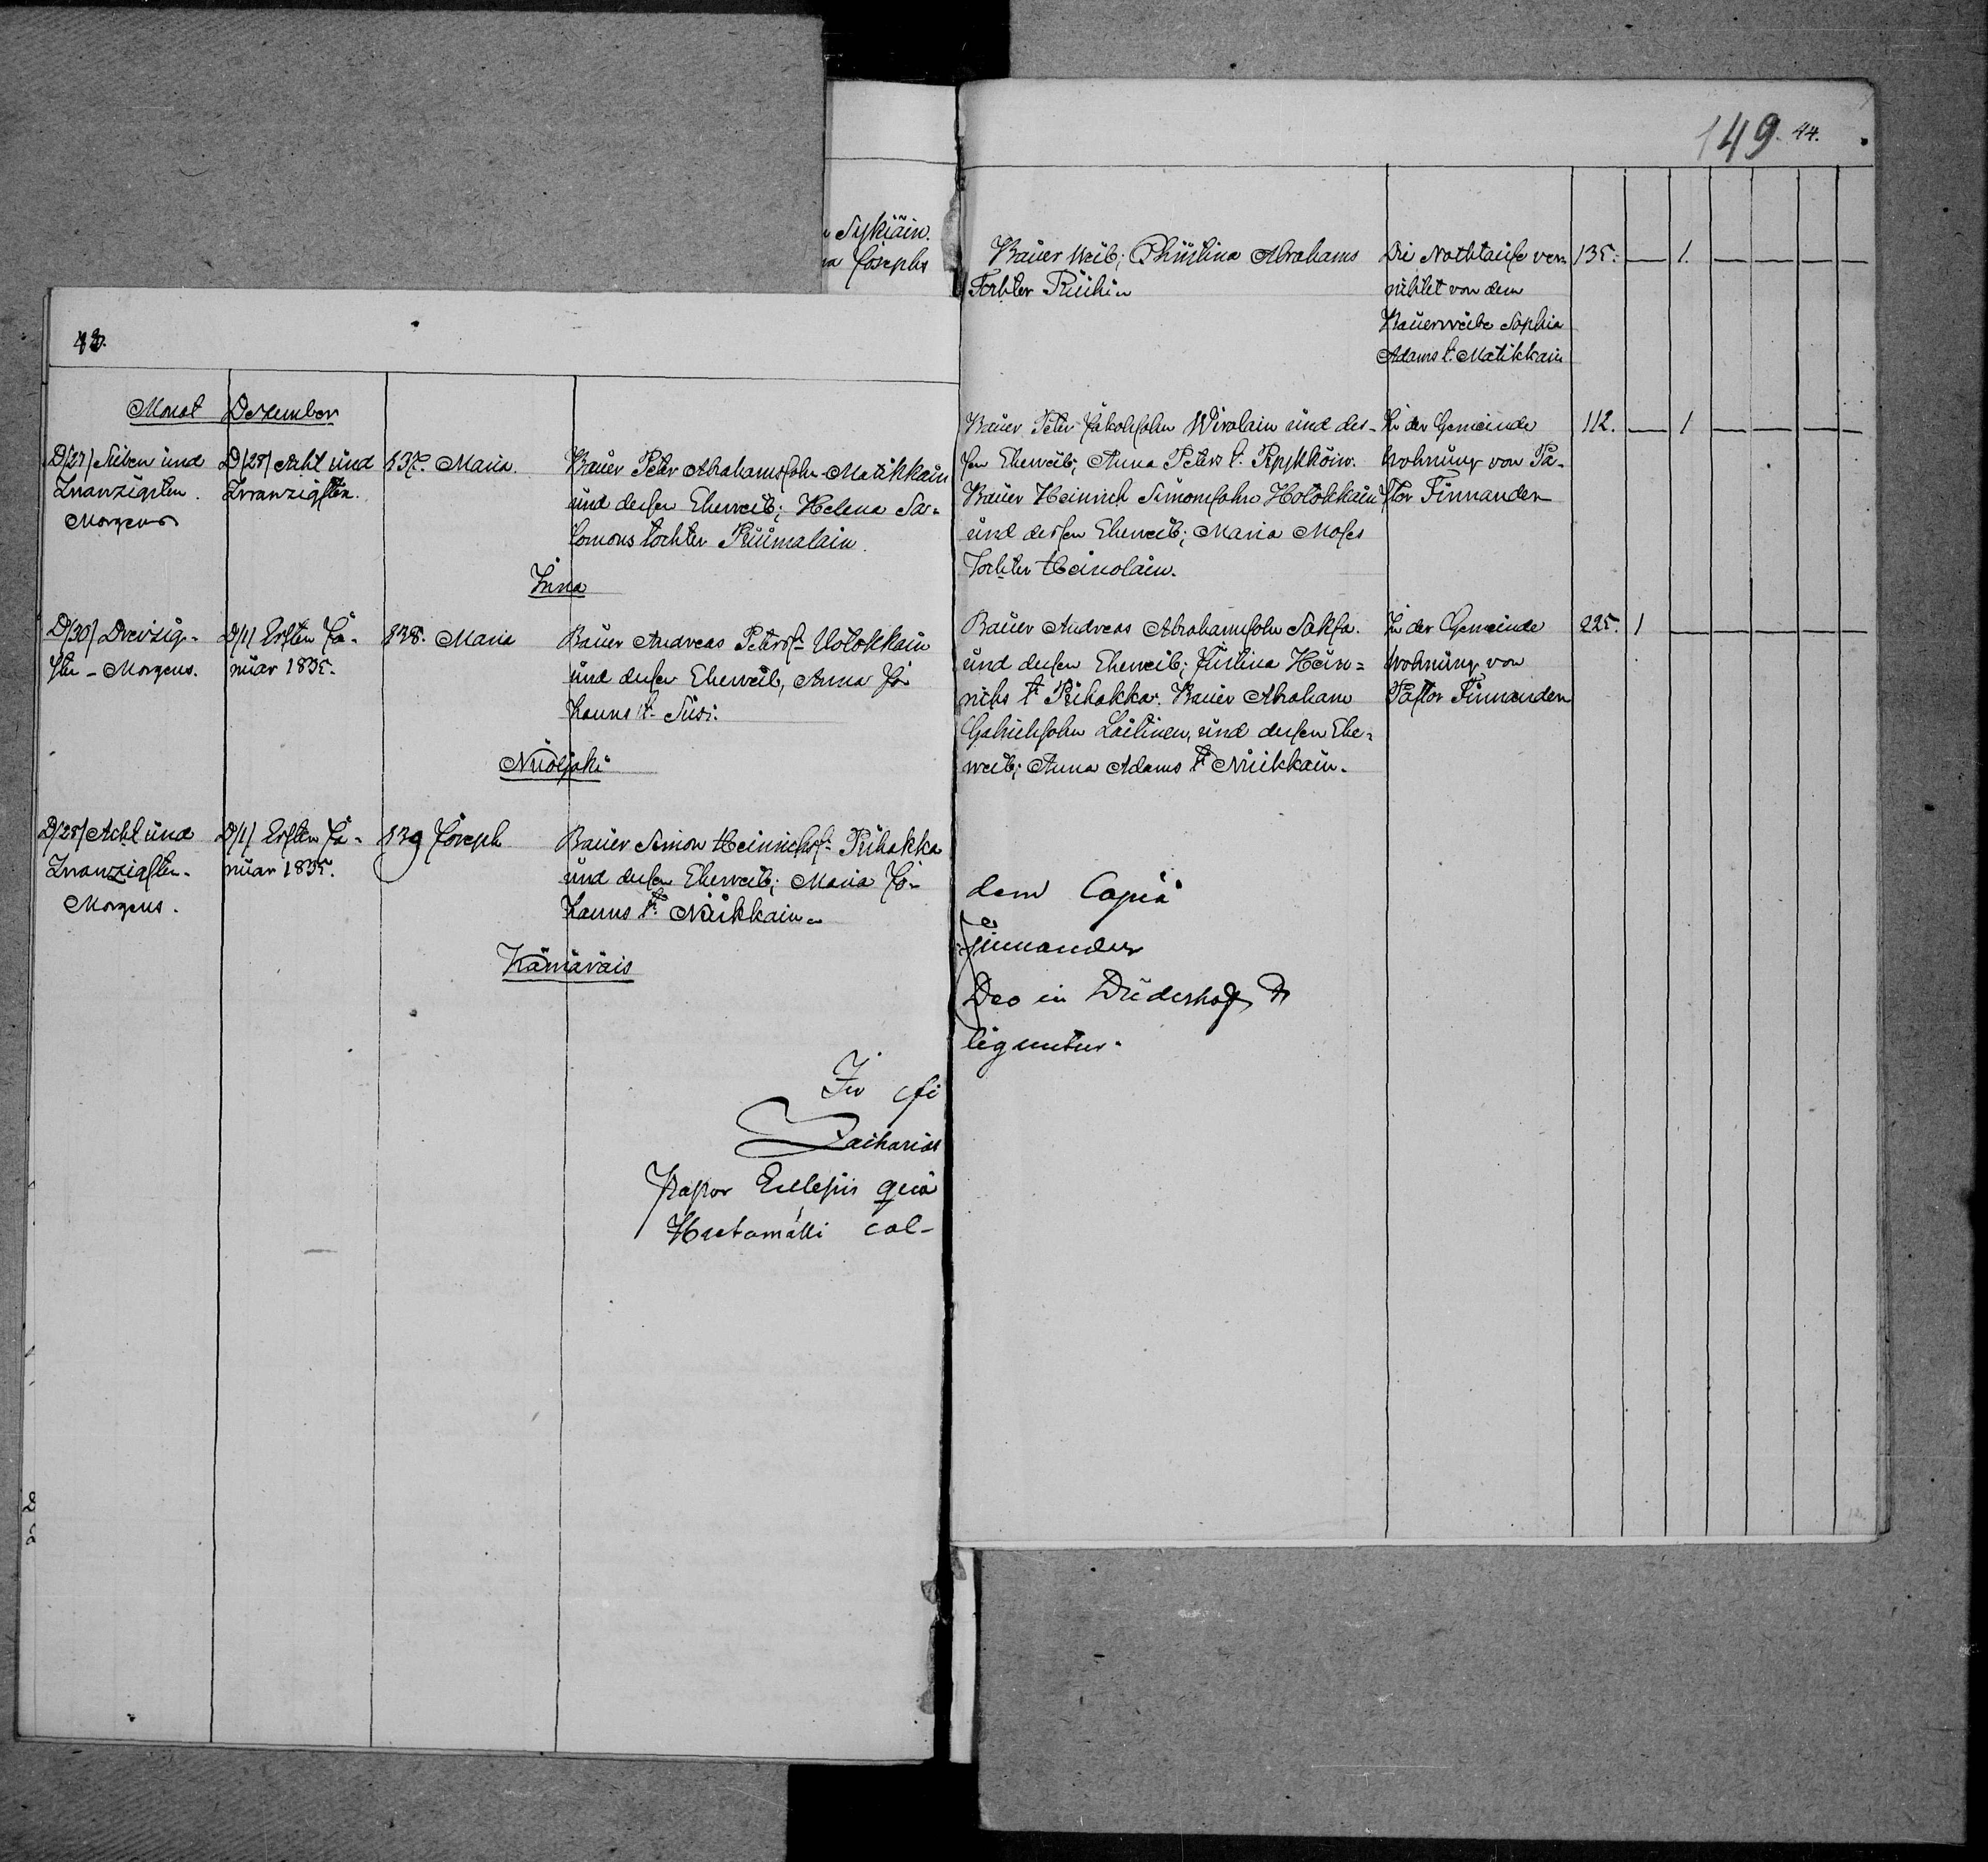 149. 44.
Sykiäin.
Josephs
43.
Monat Dezember
D/27/ Sieben und
Zwanzigsten.
Morgens
D/28/ Acht und
Zwanzigsten.
137. Maria.
Bauer Peter Abrahamssohn Matikkain
und dessen Eheweib; Helena Sa-
lomons tochter Ruumalain.
Inna
D/30/ Dreizig-
sten - Morgens.
D/1/ Ersten Ja-
nuar 1835.
138. Maria
Bauer Andreas Peters s. Holokkain
und dessen Eheweib, Anna Jo-
hanns t. Susi.
Nuoljoki
D/28/ Acht und
Zwanzigsten.
Morgens.
D/1/ Ersten Ja-
nuar 1835.
139 Joseph
Bauer Simon Heinrichs s. Pihakka
und dessen Eheweib; Maria Jo-
hanns t. Nuikkain.
Kämäräis
In fi
Zacharias
Pastor Ecclesiis quae
Hietamäki col-
Bauer Weib; Christina Abrahams
Tochter Riihin
Die Nothtaufe ver-
richtet von dem
Bauerweibe Sophia
Adams t. Matikkain
135. — 1. — — — —
Bauer Peter Jakobsohn Wirolain und des-
sen Eheweib; Anna Peters t. Pypkköin.
Bauer Heinrich Simonssohn Holokkain
und dessen Eheweib; Maria Moses
Tochter Heinolain.
In der Gemeinde
Wohnung von Pa-
stor Finnander
112. — 1 — — — —
Bauer Andreas Abrahamsohn Saksa.
und dessen Eheweib; Justina Hein-
richs t. Pihakka. Bauer Abraham
Gabrielsohn Laitinen, und dessen Ehe-
weib; Anna Adams t. Nuikkain.
In der Gemeinde
Wohnung von
Pastor Finnander
225. 1 — — — — —
dem Copiä
Finnander
Deo in Duderhoff et
liguntur.